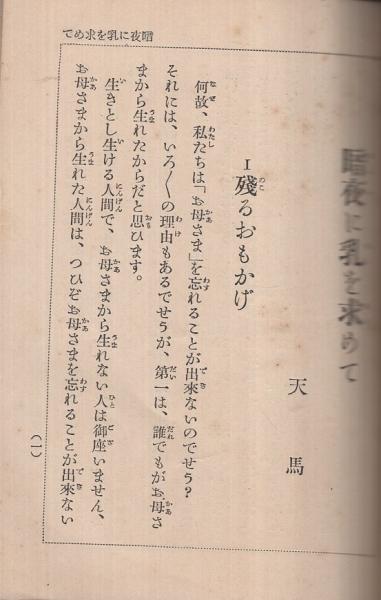 暗夜に乳を求めて
天馬
I 殘るおもかげ
何故、私たちは「お母さま」を忘れることが出來ないのでせう?
それには、いろ〱の理由もあるでせうが、第一は、誰でもがお母さ
まから生れたからだと思ひます。
生きとし生ける人間で、お母さまから生れない人は御座いません、
お母さまから生れた人間は、つひぞお母さまを忘れることが出來ない
暗夜に乳を求めて
(一)